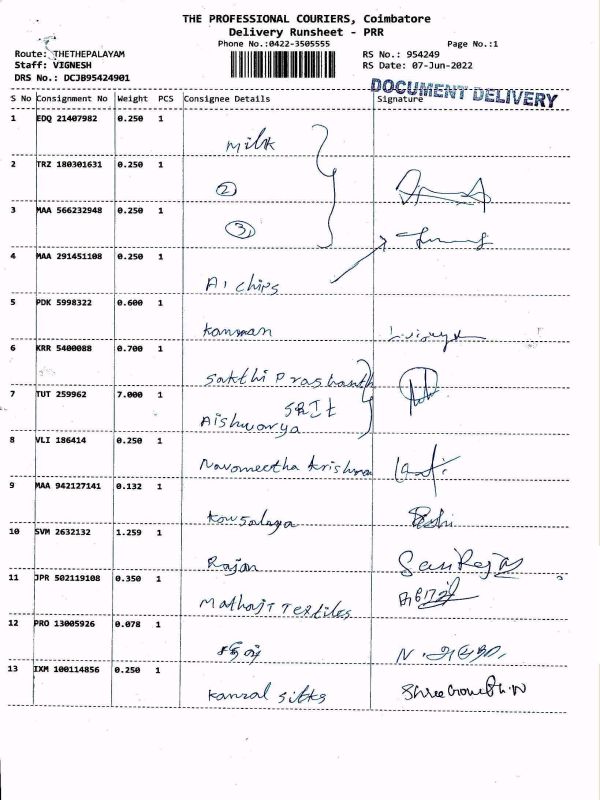 THE PROFESSIONAL COURIERS, Coimbatore
Delivery Runsheet - PRR
Phone No.:0422-3505555
Page No.:1
Route: THETHEPALAYAM
RS No.: 954249
Staff: VIGNESH
RS Date: 07-Jun-2022
DRS No.: DCJB95424901
DOCUMENT DELIVERY
S No Consignment No Weight PCS Consignee Details Signature
1 EDQ 21407982 0.250 1
milk
2 TRZ 180301631 0.250 1
2
3 MAA 566232948 0.250 1
3
4 MAA 291451108 0.250 1
A1 chips
5 PDK 5998322 0.600 1
6 KRR 5400088 0.700 1
Sakthi Prashanth
SRIt
7 TUT 259962 7.000 1
Aishwarya
8 VLI 186414 0.250 1
Navaneetha Krishna
9 MAA 942127141 0.132 1
Kowsalaya
10 SVM 2632132 1.259 1
Rajan
11 JPR 502119108 0.350 1
Textiles
12 PRO 13005926 0.078 1
13 IXM 100114856 0.250 1
silks